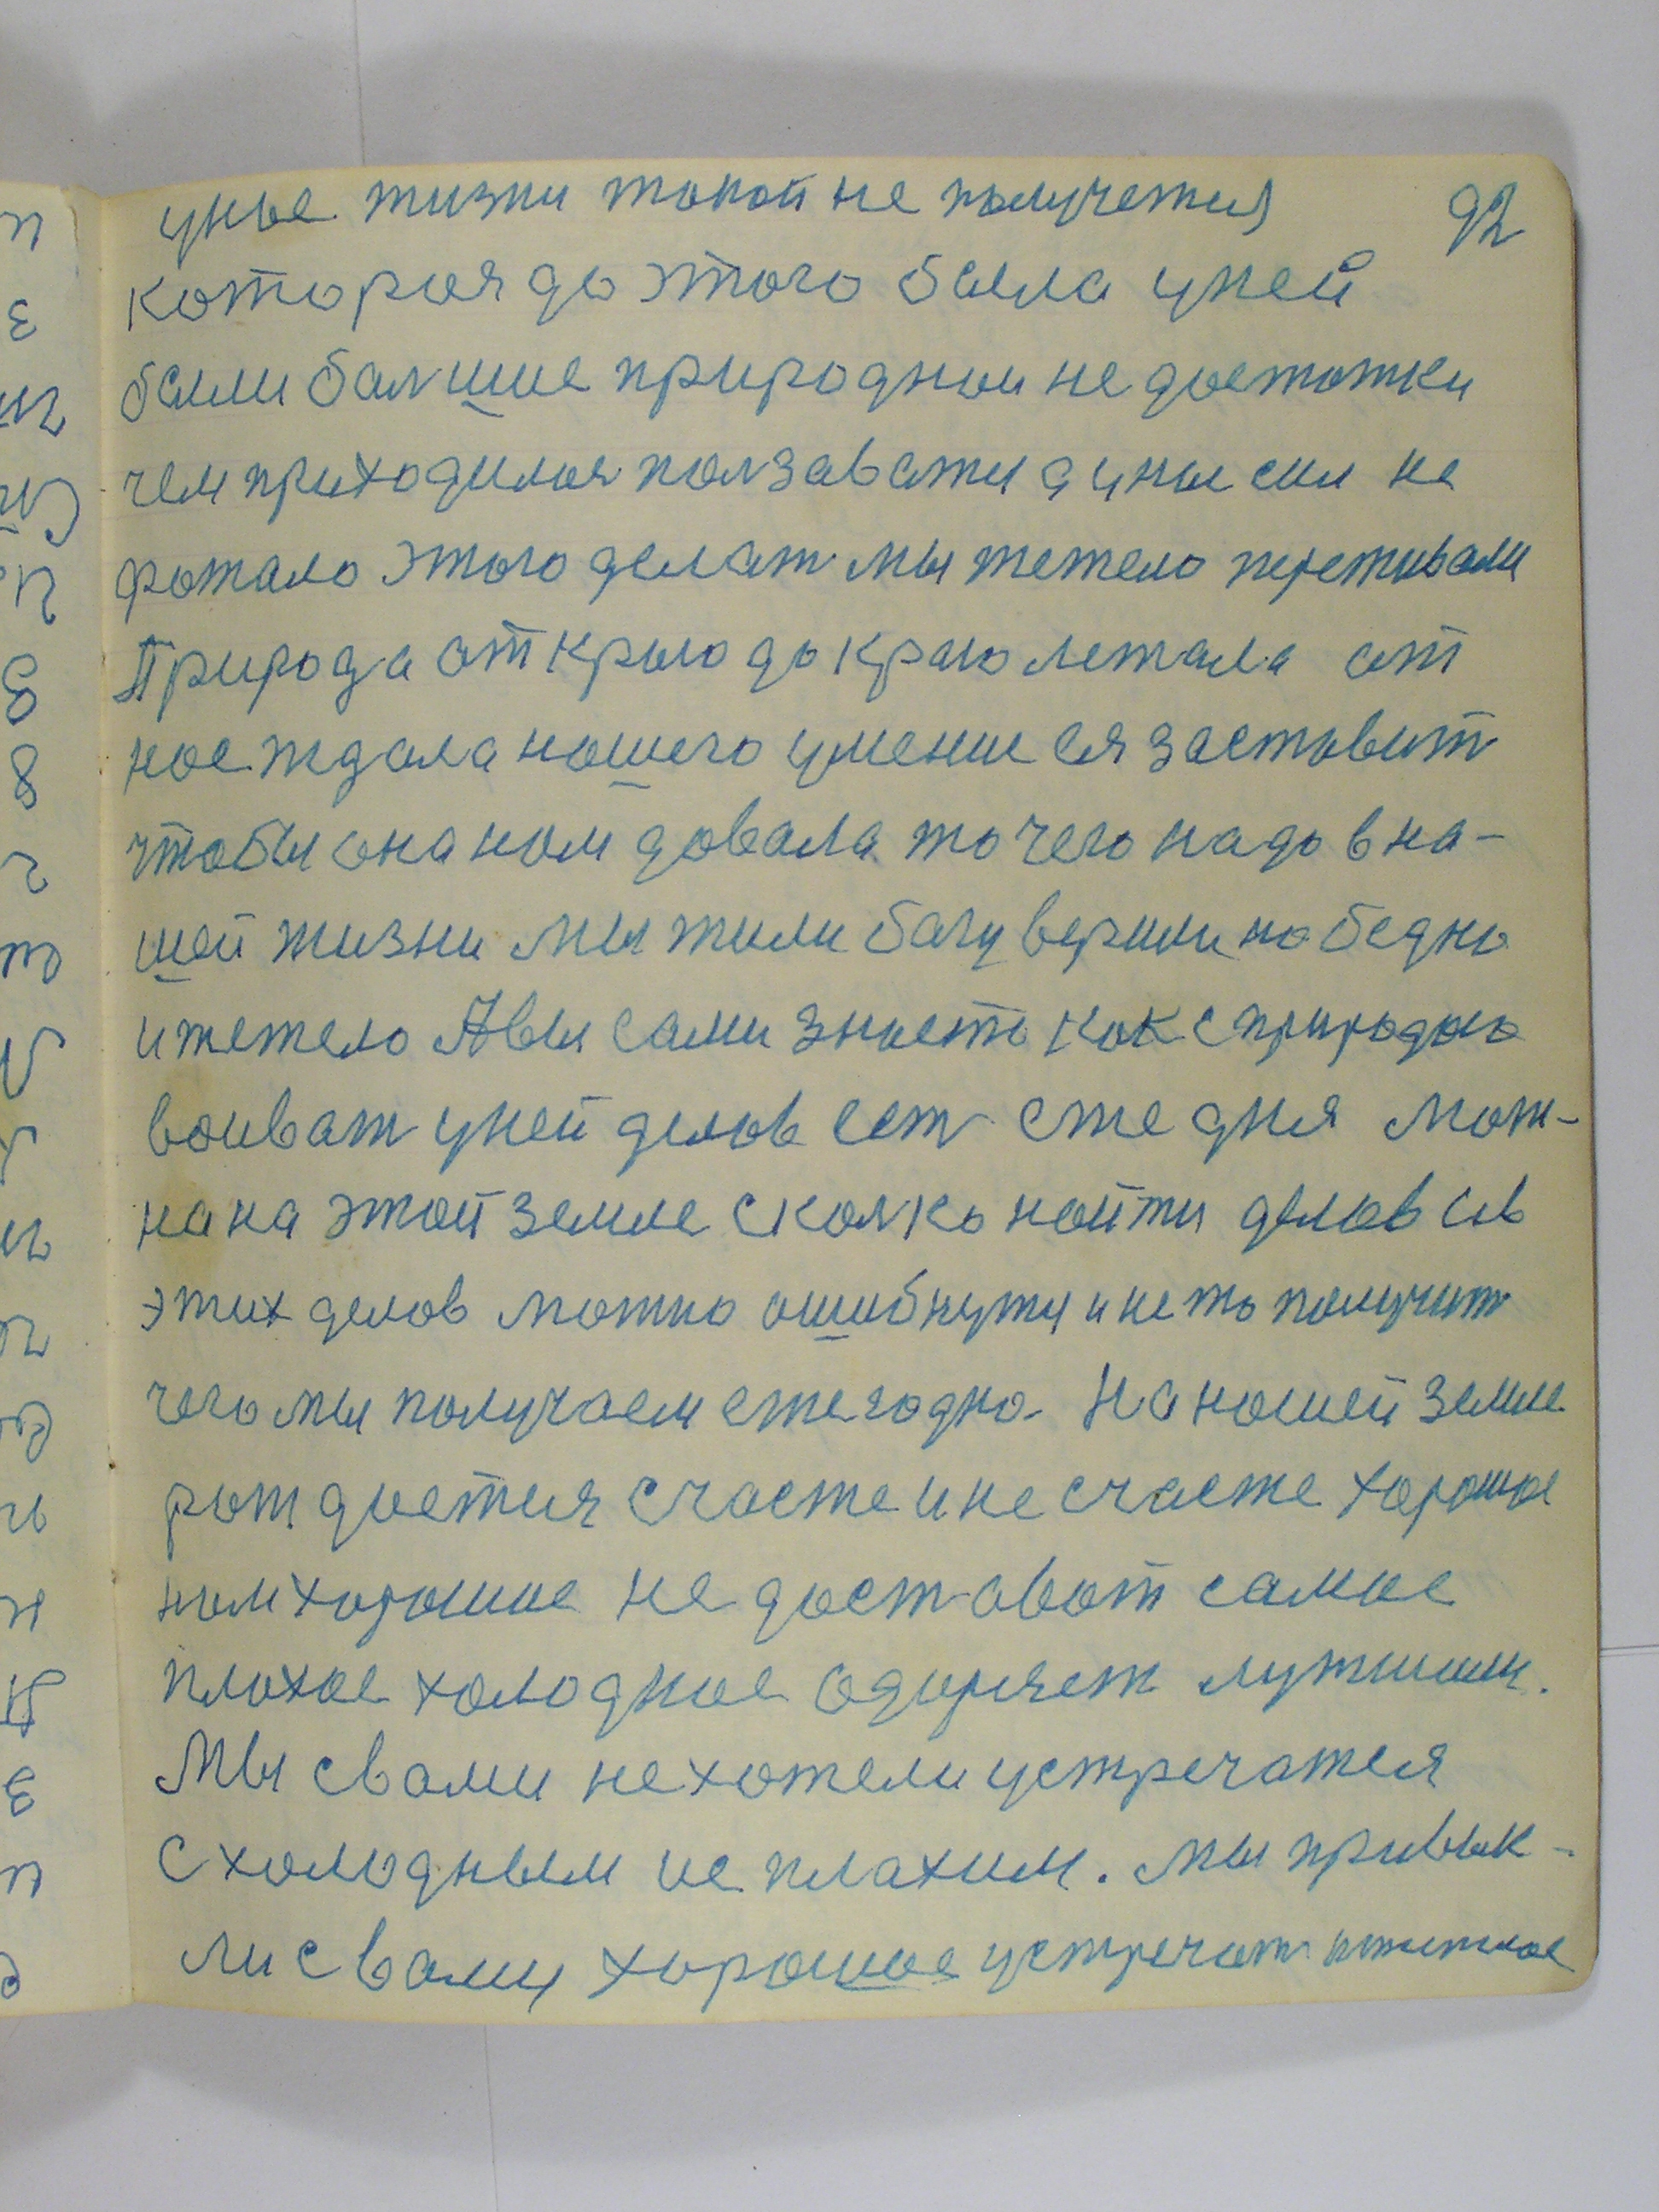 92
унас жизни такой не получется
которая до этого была уней
были балшие природнаи не достатки
чем приходилося ползаватся аунас сил не
фатало этого делат мы тежело переживали
Природа от краю до краю лежала от
нас ждала нашего умение ея заставит
чтобы она нам довала то чего надо в на-
шей жизни мы жили багу верили но бедно
и тежело Авы сами знаете как с природою
воиват уней делов ест еже дня мож-
на на этой земле сколко найти делов ив
этих делов можно ошибнутся и не то получит
чего мы получаем ежегодно. На нашей земле
рождается счасте и не счасте хорошое
нам хорошое не доставот самое
плохое холодное одоряет лутшим.
Мы свами не хотели устречатся
с холодным ие плахим. мы привык-
ли свами хорошое устречат